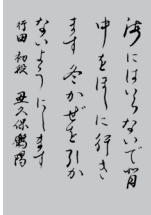 海にはいらないで背
中をほしに行き
ます 冬かぜを引か
ないようにします
行田 初枝 書 久保鶴陽